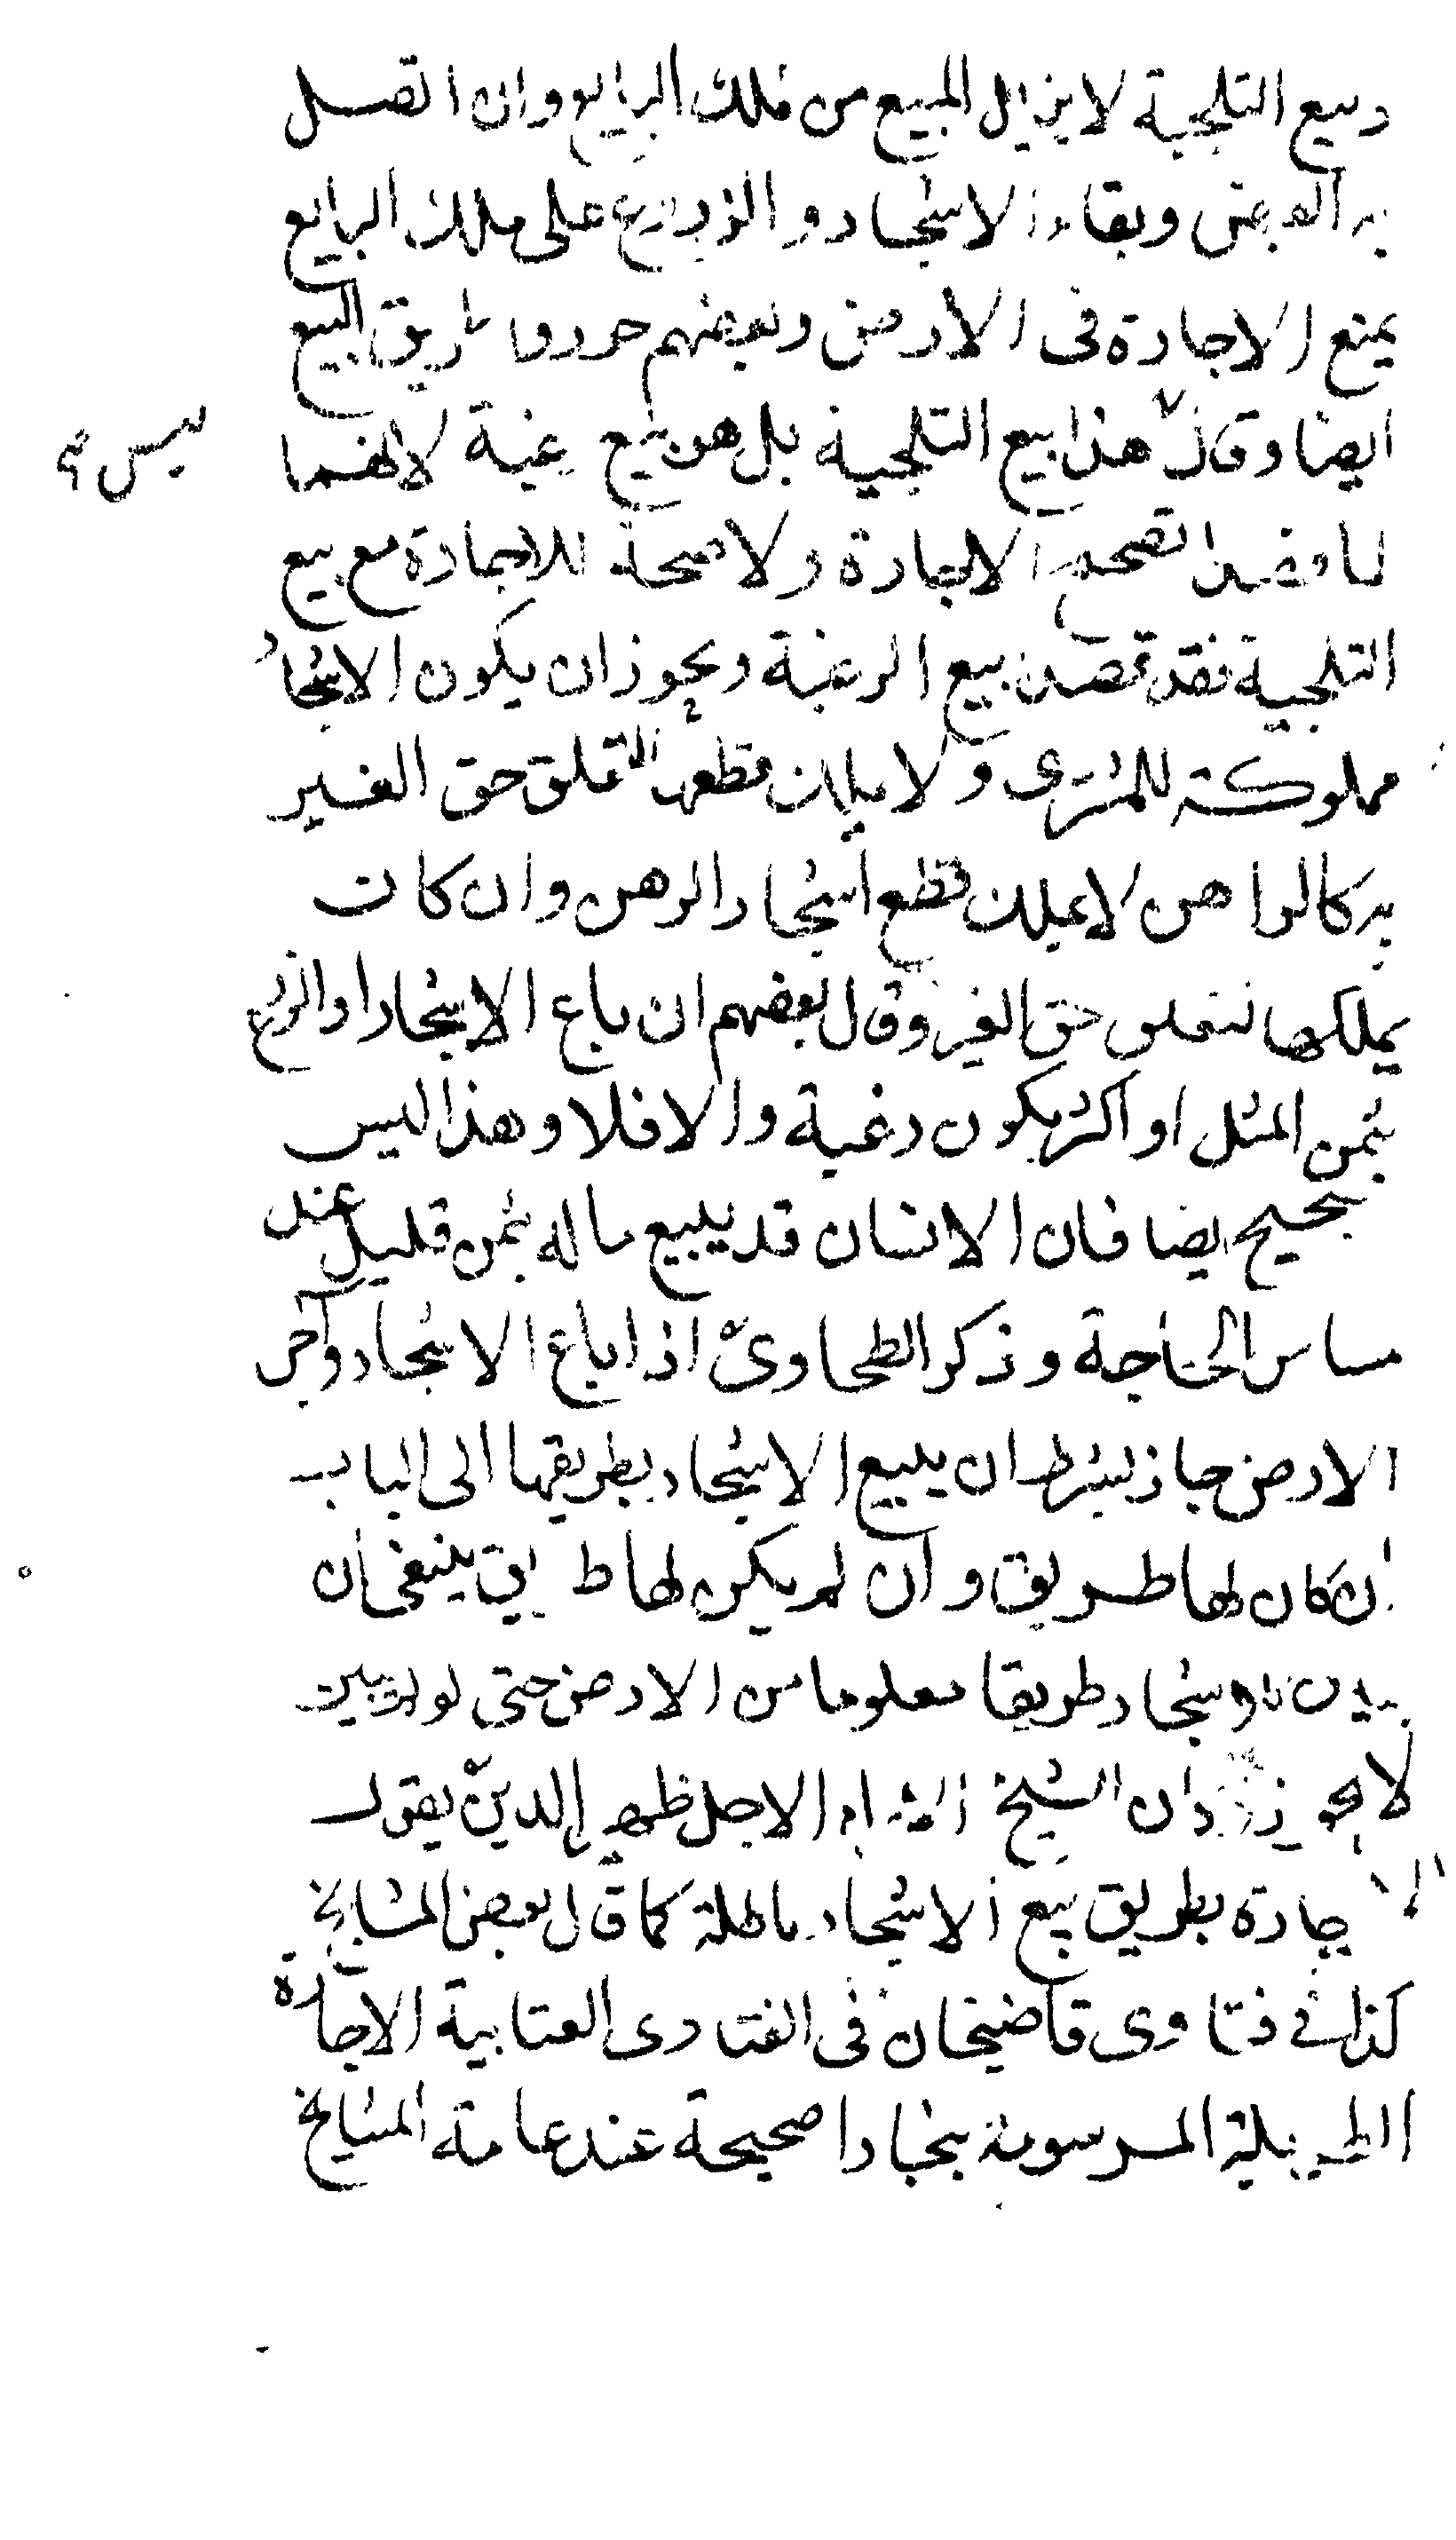 وبيع التلجية لا يزيل المبيع من ملك البايع وان اتصل
به القبض وبقاء الاشجار والزرع على ملك البايع
يمنع الاجارة فى الارض وبعضهم جوزوا طريق البيع
ايضا وقال هذا بيع التلجية بل هو بيع رغبة لانهما
ليس
لما قصدا تصحيح الاجارة ولا صحة للاجارة مع بيع
التلجية فقد قصدا بيع الرغبة ويجوز ان يكون الاشجار
مملوكة للمشترى ولا يملك قطعها لتعلق حق الغير
به كالراهن لا يملك قطع اشجار الرهن وان كان
يملكها لتعلق حق الغير وقال بعضهم ان باع الاشجار او الزرع
بثمن المثل او اكثر يكون رغبة والا فلا وهذا ليس
بصحيح ايضا فان الانسان قد يبيع ماله بثمن قليل عند
مساس الحاجة وذكر الطحاوى اذا باع الاشجار وآجر
الارض جاز بشرط ان يبيع الاشجار بطريقها الى الباب
ان كان لها طريق وان لم يكن لها طريق ينبغى ان
يبين للاشجار طريقا معلوما من الارض حتى لو لم يبين
لا يجوز وكان الشيخ الامام الاجل ظهير الدين يقول
الاجارة بطريق بيع الاشجار باطلة كما قال بعض المشايخ
كذا فى فتاوى قاضيخان فى الفتاوى العتابية الاجارة
الطويلة المرسومة ببخارا صحيحة عند عامة المشايخ